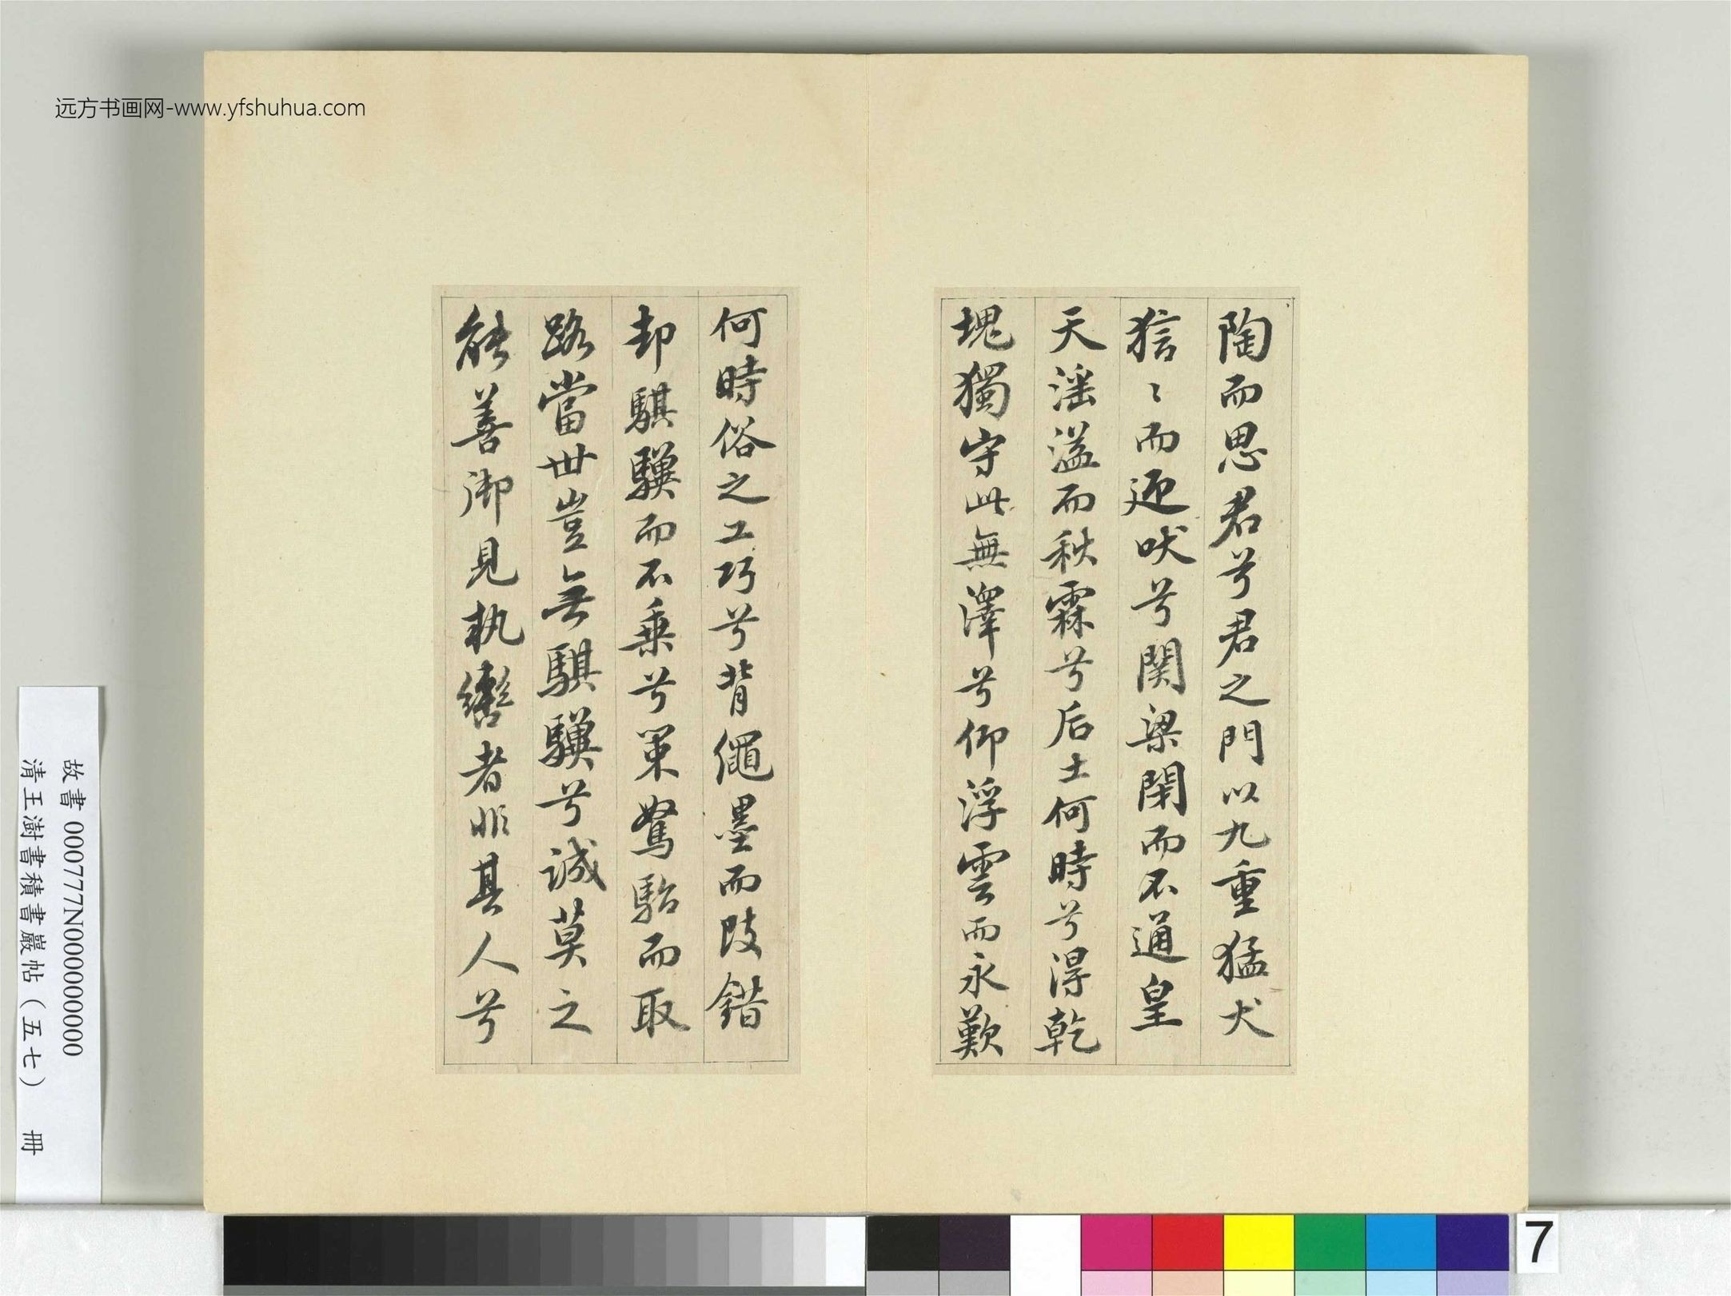 远方书画网-www.yfshuhua.com
陶而思君兮君之門以九重猛犬
狺〻而迎吠兮関梁閉而不通皇
天滛溢而秋霖兮后土何時兮得乾
塊獨守此無澤兮仰浮雲而永歎
何時俗之工巧兮背繩墨而改錯
却騏驥而不乗兮策駑駘而取
路當世豈無騏驥兮誠莫之
能善御見執轡者非其人兮
故書 000777N000000000
清王澍書積書巖帖（五七） 冊
7